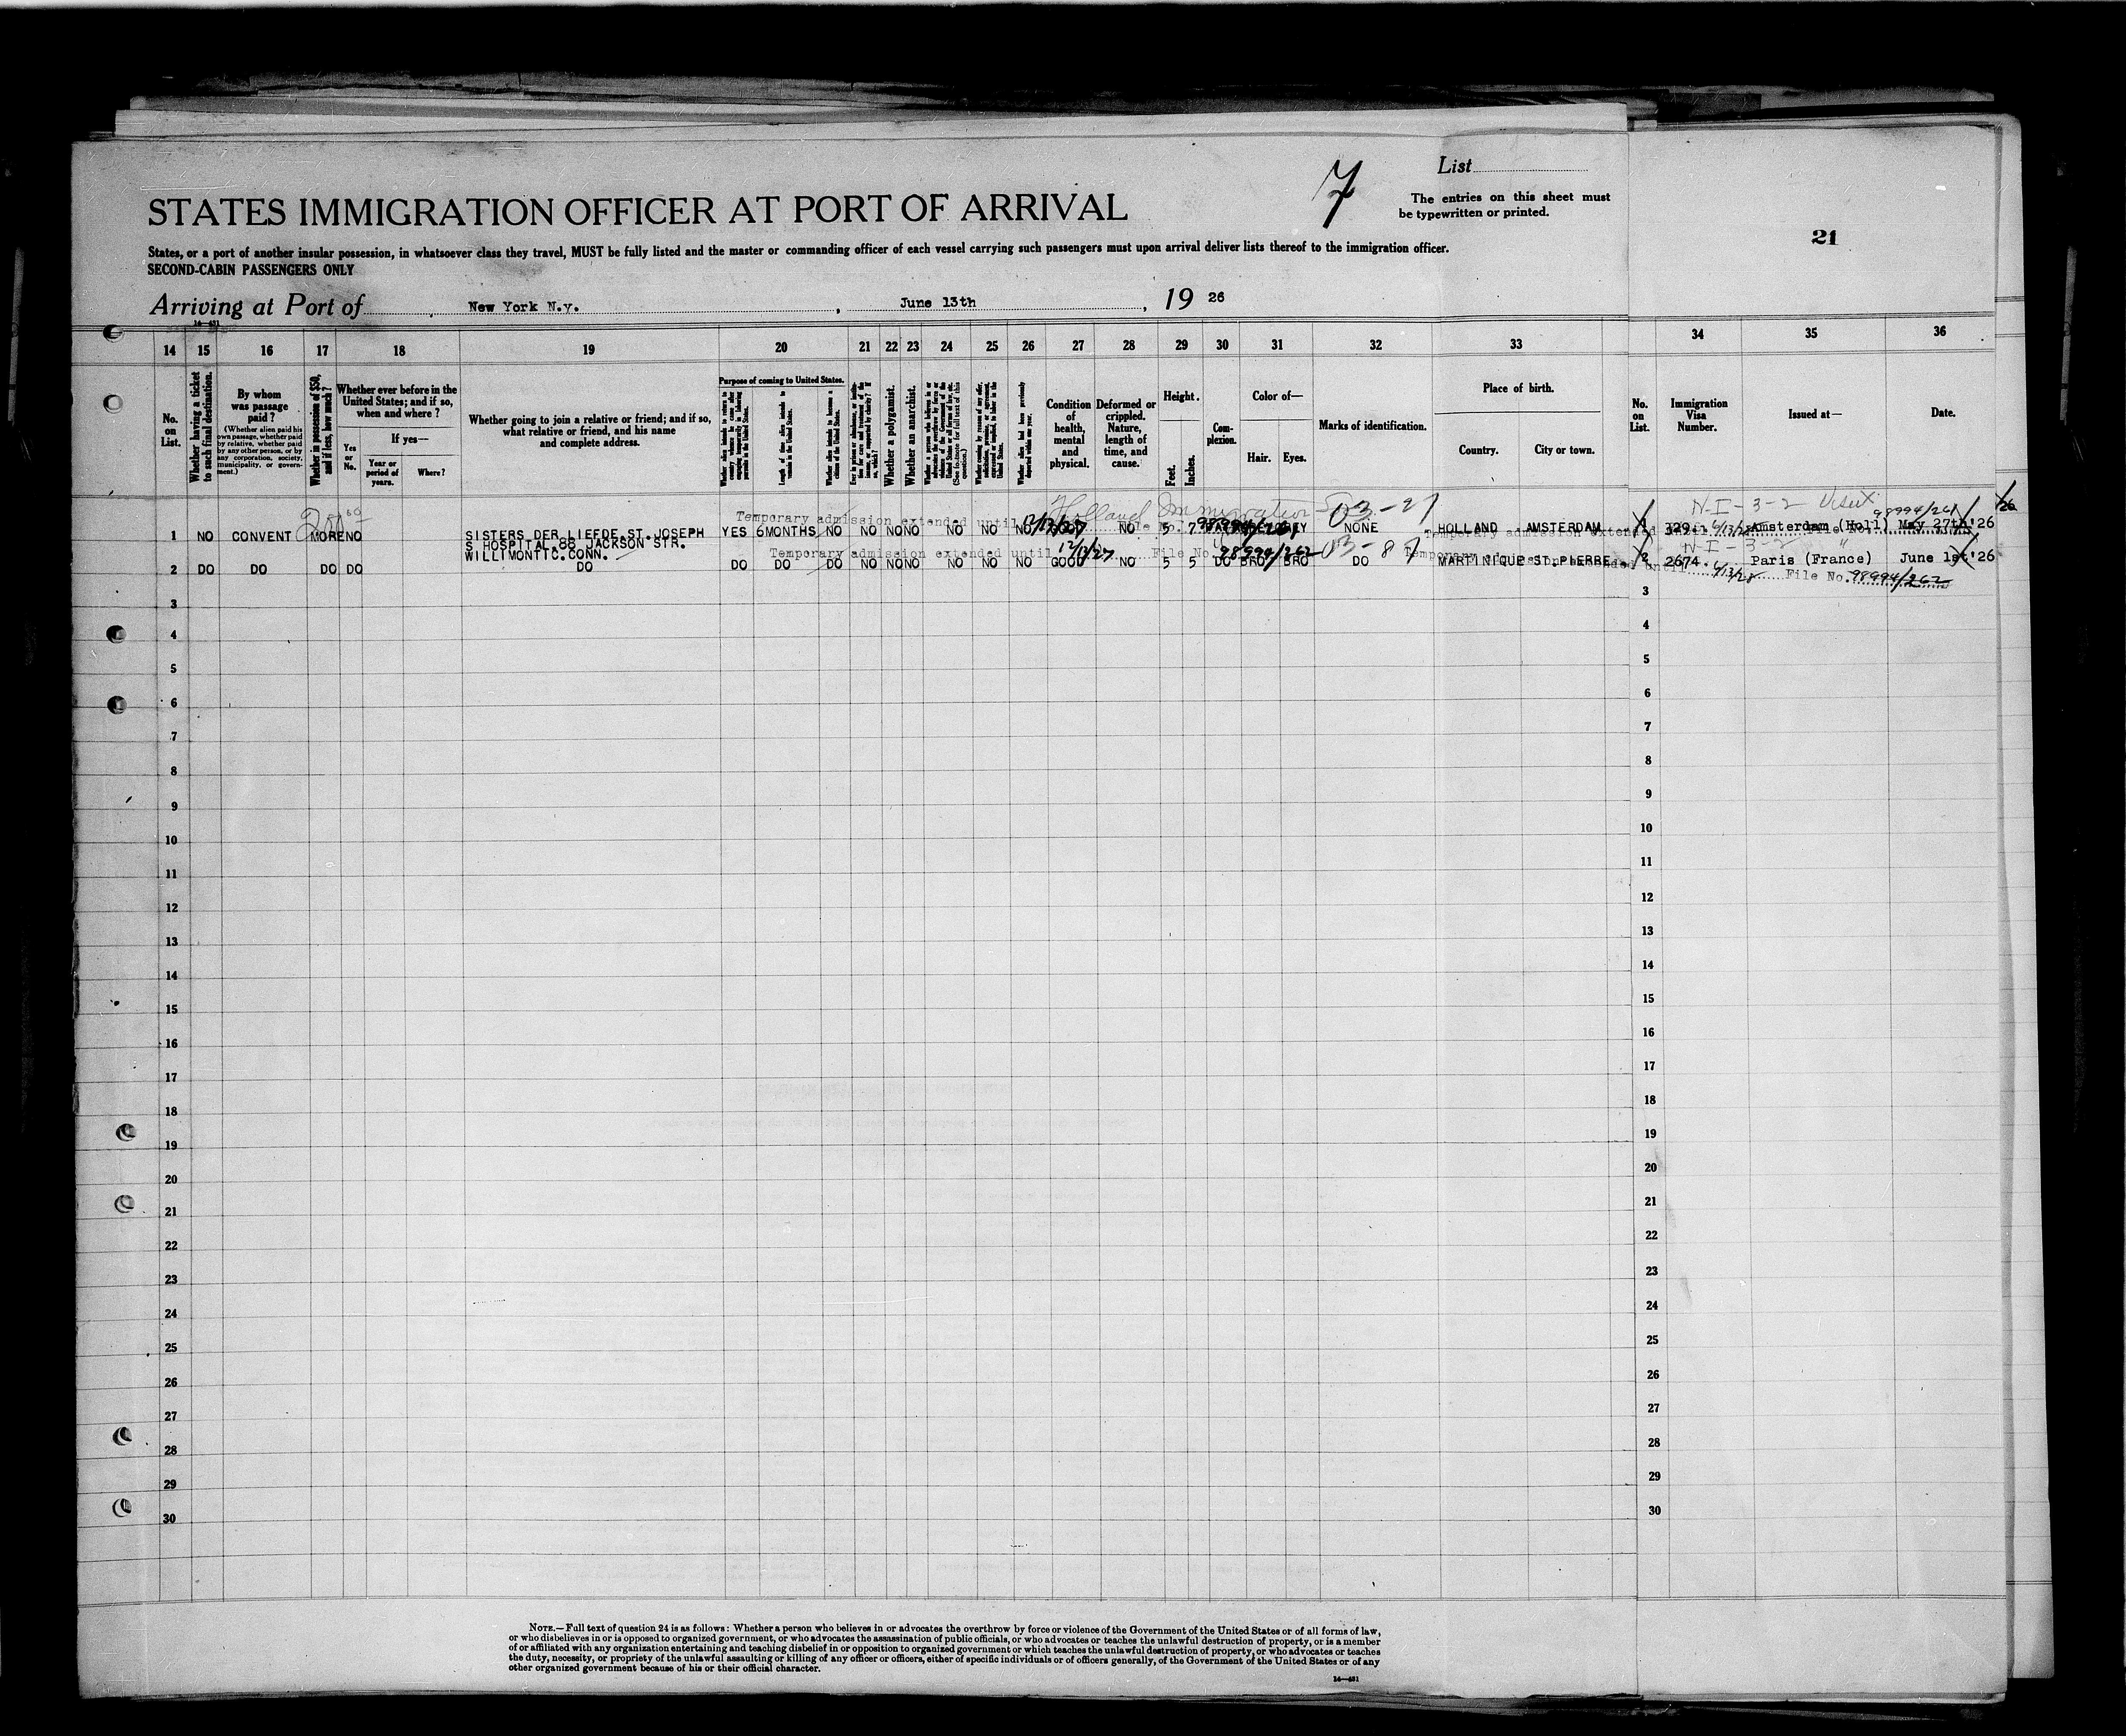 List
7
The entries on this sheet must
be typewritten or printed.
21
STATES IMMIGRATION OFFICER AT PORT OF ARRIVAL
States, or a port of another insular possession, in whatsoever class they travel, MUST be fully listed and the master or commanding officer of each vessel carrying such passengers must upon arrival deliver lists thereof to the immigration officer.
SECOND-CABIN PASSENGERS ONLY
Arriving at Port of New York N.y. , June 13th , 19 26
16—431
14 15 16 17 18 19 20 21 22 23 24 25 26 27 28 29 30 31 32 33 34 35 36
No. on List.
Whether having a ticket to such final destination.
By whom was passage paid?
(Whether alien paid his own passage, whether paid by relative, whether paid by any other person, or by any corporation, society, municipality, or government.)
Whether in possession of $50, and if less, how much?
Whether ever before in the United States; and if so, when and where?
Yes or No.
If yes—
Year or period of years.
Where?
Whether going to join a relative or friend; and if so, what relative or friend, and his name and complete address.
Purpose of coming to United States.
Length of time alien intends to remain in the United States.
Whether alien intends to become a citizen of the United States.
Whether a polygamist.
Whether an anarchist.
Condition of health, mental and physical.
Deformed or crippled. Nature, length of time, and cause.
Height.
Feet. Inches.
Complexion.
Color of—
Hair. Eyes.
Marks of identification.
Place of birth.
Country. City or town.
No. on List.
Immigration Visa Number.
Issued at—
Date.
Holland Immigration
03-27
N-I-3-2
98994/261
Temporary admission extended until 12/13/27 File No. 98994/261
1 NO CONVENT MORE NO SISTERS DER LIEFDE.ST.JOSEPH YES 6MONTHS NO NO NO NO NO NO NO GOOD NO 5 7 NONE HOLLAND AMSTERDAM 1 329 Amsterdam (Holl) May 27th '26
S HOSPITAL.CO JACKSON STR.
WILLIMONTIC.CONN.
Temporary admission extended until 12/13/27 File No. 98994/262 03-87
N-I-3-2 "
2 DO DO DO DO DO DO DO DO NO NO NO NO NO NO GOOD NO 5 5 DO BRO BRO DO MARTINIQUE ST.PIERRE 2 2674 Paris (France) June 1st '26
6/13/28 File No. 98994/262
3 3
4 4
5 5
6 6
7 7
8 8
9 9
10 10
11 11
12 12
13 13
14 14
15 15
16 16
17 17
18 18
19 19
20 20
21 21
22 22
23 23
24 24
25 25
26 26
27 27
28 28
29 29
30 30
NOTE.—Full text of question 24 is as follows: Whether a person who believes in or advocates the overthrow by force or violence of the Government of the United States or of all forms of law,
or who disbelieves in or is opposed to organized government, or who advocates the assassination of public officials, or who advocates or teaches the unlawful destruction of property, or is a member
of or affiliated with any organization entertaining and teaching disbelief in or opposition to organized government or which teaches the unlawful destruction of property, or who advocates or teaches
the duty, necessity, or propriety of the unlawful assaulting or killing of any officer or officers, either of specific individuals or of officers generally, of the Government of the United States or of any
other organized government because of his or their official character.
16—431